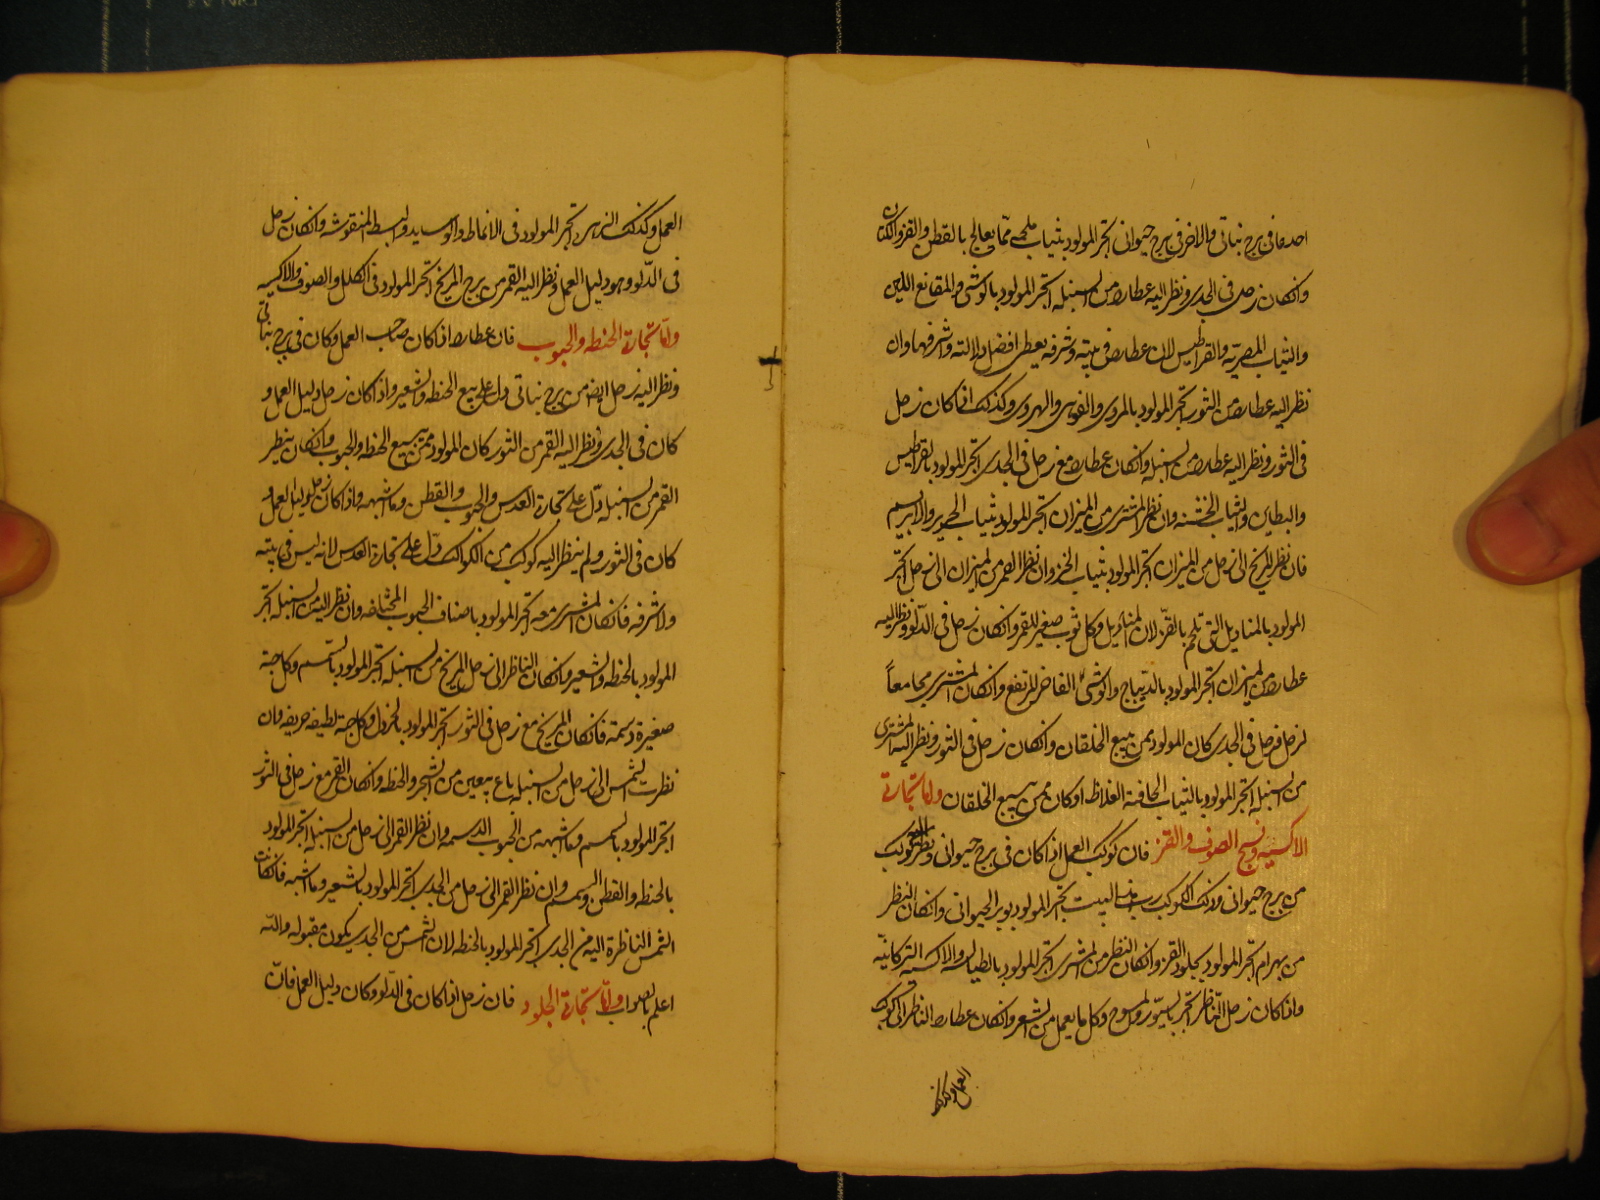 احدهما في برج نباتي والاخر في برج حيواني اتجر المولود بثياب ملحمه مما يعالج بالقطن والقز والكتان
وانكان زحل في الجدي ونظر اليه عطارد من السنبله اتجر المولود بالوشي والمقانع اللين
والثياب المصرية والقراطيس لان عطارد في بيته وشرفه يعطي افضل دلالته واشرفها وان
نظر اليه عطارد من الثور اتجر المولود بالمروي والقوهي والهروي وكذلك اذا كان زحل
في الثور ونظر اليه عطارد من السنبله وانكان عطارد مع زحل في الجدي اتجر المولود بالقراطيس
والبطاين والثياب الخشنه وان نظر المشتري من الميزان اتجر المولود بثياب الحرير والابريسم
فان نظر المريخ الى زحل من الميزان اتجر المولود بثياب الخز وان نظر القمر من الميزان الى زحل اتجر
المولود بالمناديل التي تلحم بالقز لان المناديل وكل ثوب صغير للقمر وانكان زحل في الدلو ونظر اليه
عطارد من الميزان اتجر المولود بالديباج والوشي الفاخر المرتفع وانكان المشتري مجامعاً
لزحل في الجدي كان المولود ممن يبيع الخلقان وانكان زحل في الثور ونظر اليه المشتري
من السنبله اتجر المولود بالثياب الجافية الغلاظ او كان ممن يبيع الخلقان واما تجارة
الاكسيه ونسج الصوف والقز فان كوكب العمل اذا كان في برج حيواني ونظر اليه كوكب
من برج حيواني وذلك الكوكب رب البيت اتجر المولود بوبر الحيواني وانكان النظر
من بهرام اتجر المولود بجلود القز وانكان النظر من المشتري اتجر المولود بالطيالسه والاكسيه التركانيه
واذا كان زحل الناظر اتجر بالستور والمسوح وكل ما يعمل من الشعر وانكان عطارد الناظر الى كوكب
العمل وكذلك
العمل وكذلك الزهره اتجر المولود في الانماط والوسايد والبسط المنقوشه وانكان زحل
في الدلو وهو دليل العمل ونظر اليه القمر من برج المريخ اتجر المولود في الكلل والصوف والاكسيه
واما تجارة الحنطه والحبوب فان عطارد اذا كان صاحب العمل وكان في برج نباتي
ونظر اليه زحل ايضا من برج نباتي دل على بيع الحنطه والشعير واذا كان زحل دليل العمل و
كان في الجدي ونظر اليه القمر من الثور كان المولود ممن يبيع الحنطه والحبوب وانكان ينظر
القمر من السنبله دل على تجارة العدس والحبوب والقطن وما اشبهه واذا كان زحل دليل العمل و
كان في الثور ولم ينظر اليه كوكب من الكواكب دل على تجارة العدس لانه ليس في بيته
ولا شرفه فانكان المشتري معه اتجر المولود باصناف الحبوب المختلفه وان نظر اليه من السنبله اتجر
المولود بالحنطه والشعير وانكان الناظر الى زحل المريخ من السنبله اتجر المولود بالسمسم وكل حبة
صغيرة دسمة فانكان المريخ مع زحل في الثور اتجر المولود بالخردل وكل حبة لطيفه حريفه وان
نظرت الشمس الى زحل من السنبله باع نبعين من الشجر والحنطه وانكان القمر مع زحل في الثور
اتجر المولود بالسمسم وما اشبهه من الحبوب الدسمه وان نظر القمر الى زحل من السنبله اتجر المولود
بالحنطه والقطن والسمسم وان نظر القمر الى زحل من الجدي اتجر المولود بالشعير وما اشبهه فانكانت
الشمس الناظرة اليه من الجدي اتجر المولود بالحنطه لان الشمس من الجدي يكون مقبوله والله
اعلم بالصواب واما تجارة الجلود فان زحل اذا كان في الدلو وكان دليل العمل فان